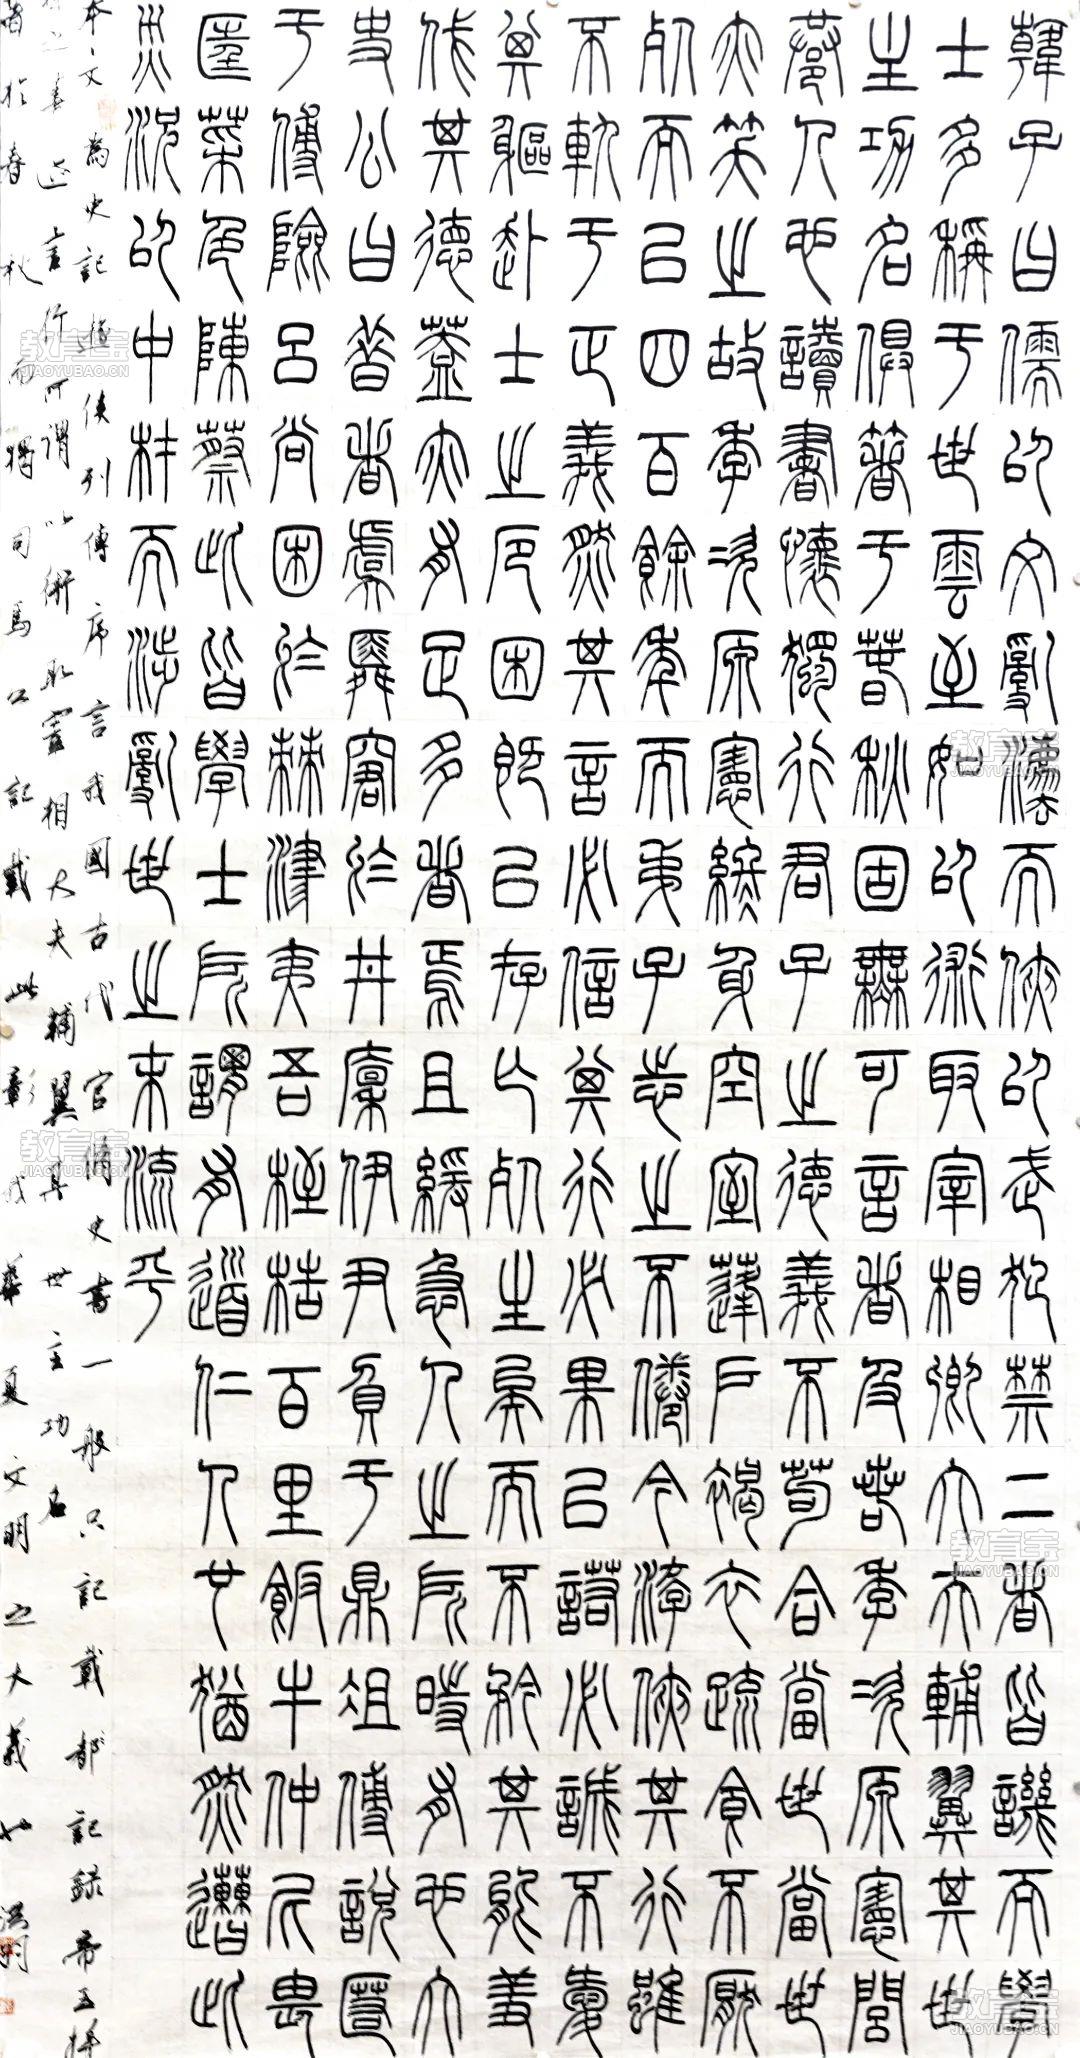 韓子曰儒以文亂灋而俠以武犯禁二者皆譏而學
士多稱于世雲至如以術取宰相卿大夫輔翼其世
主功名俱著于春秋固無可言者及若季次原憲閭
巷人也讀書懷獨行君子之德義不苟合當世當世
亦笑之故季次原憲終身空室蓬戶褐衣疏食不厭
死而已四百餘年而弟子志之不倦今游俠其行雖
不軌于正義然其言必信其行必果已諾必誠不愛
其軀赴士之厄困既已存亡死生矣而不矜其能羞
伐其德蓋亦有足多者焉且緩急人之所時有也太
史公曰昔者虞舜窘於井廩伊尹負于鼎俎傅說匿
于傅險呂尚困於棘津夷吾桎梏百里飯牛仲尼畏
匡菜色陳蔡此皆學士所謂有道仁人也猶然遭此
災況以中材而涉亂世之末流乎
本文為史記遊俠列傳序言我國古代官脩史書一般只記載都記錄帝王將
之善迹言行所謂以術取宰相大夫輔翼其世主功名
者於春秋而獨司馬公記載此彰我華夏文明之大義也